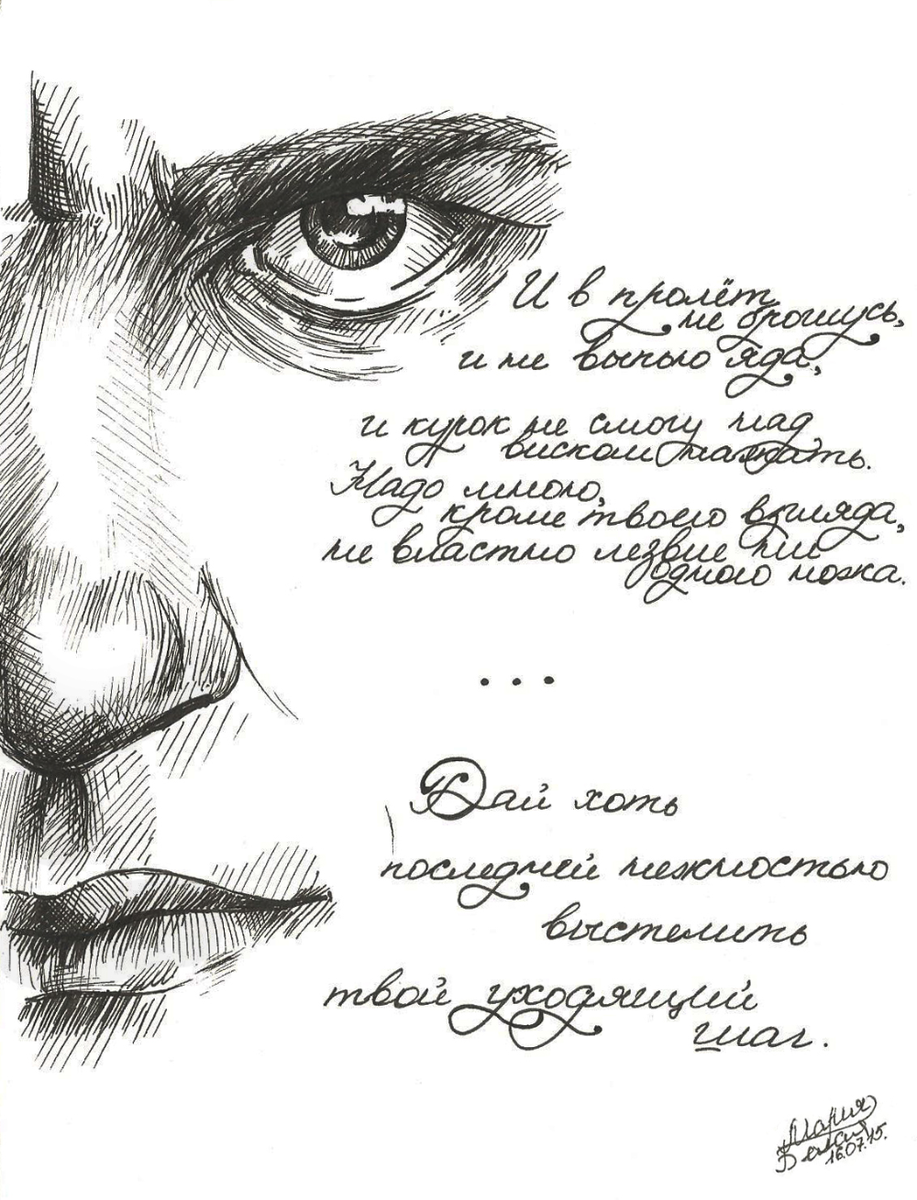 И в пролёт
не брошусь,
и не выпью яда,
и курок не смогу над
виском нажать.
Надо мною,
кроме твоего взгляда,
не властно лезвие ни
одного ножа.
...
Дай хоть
последней нежностью
выстелить
твой уходящий
шаг.
Мария
16.07.15.